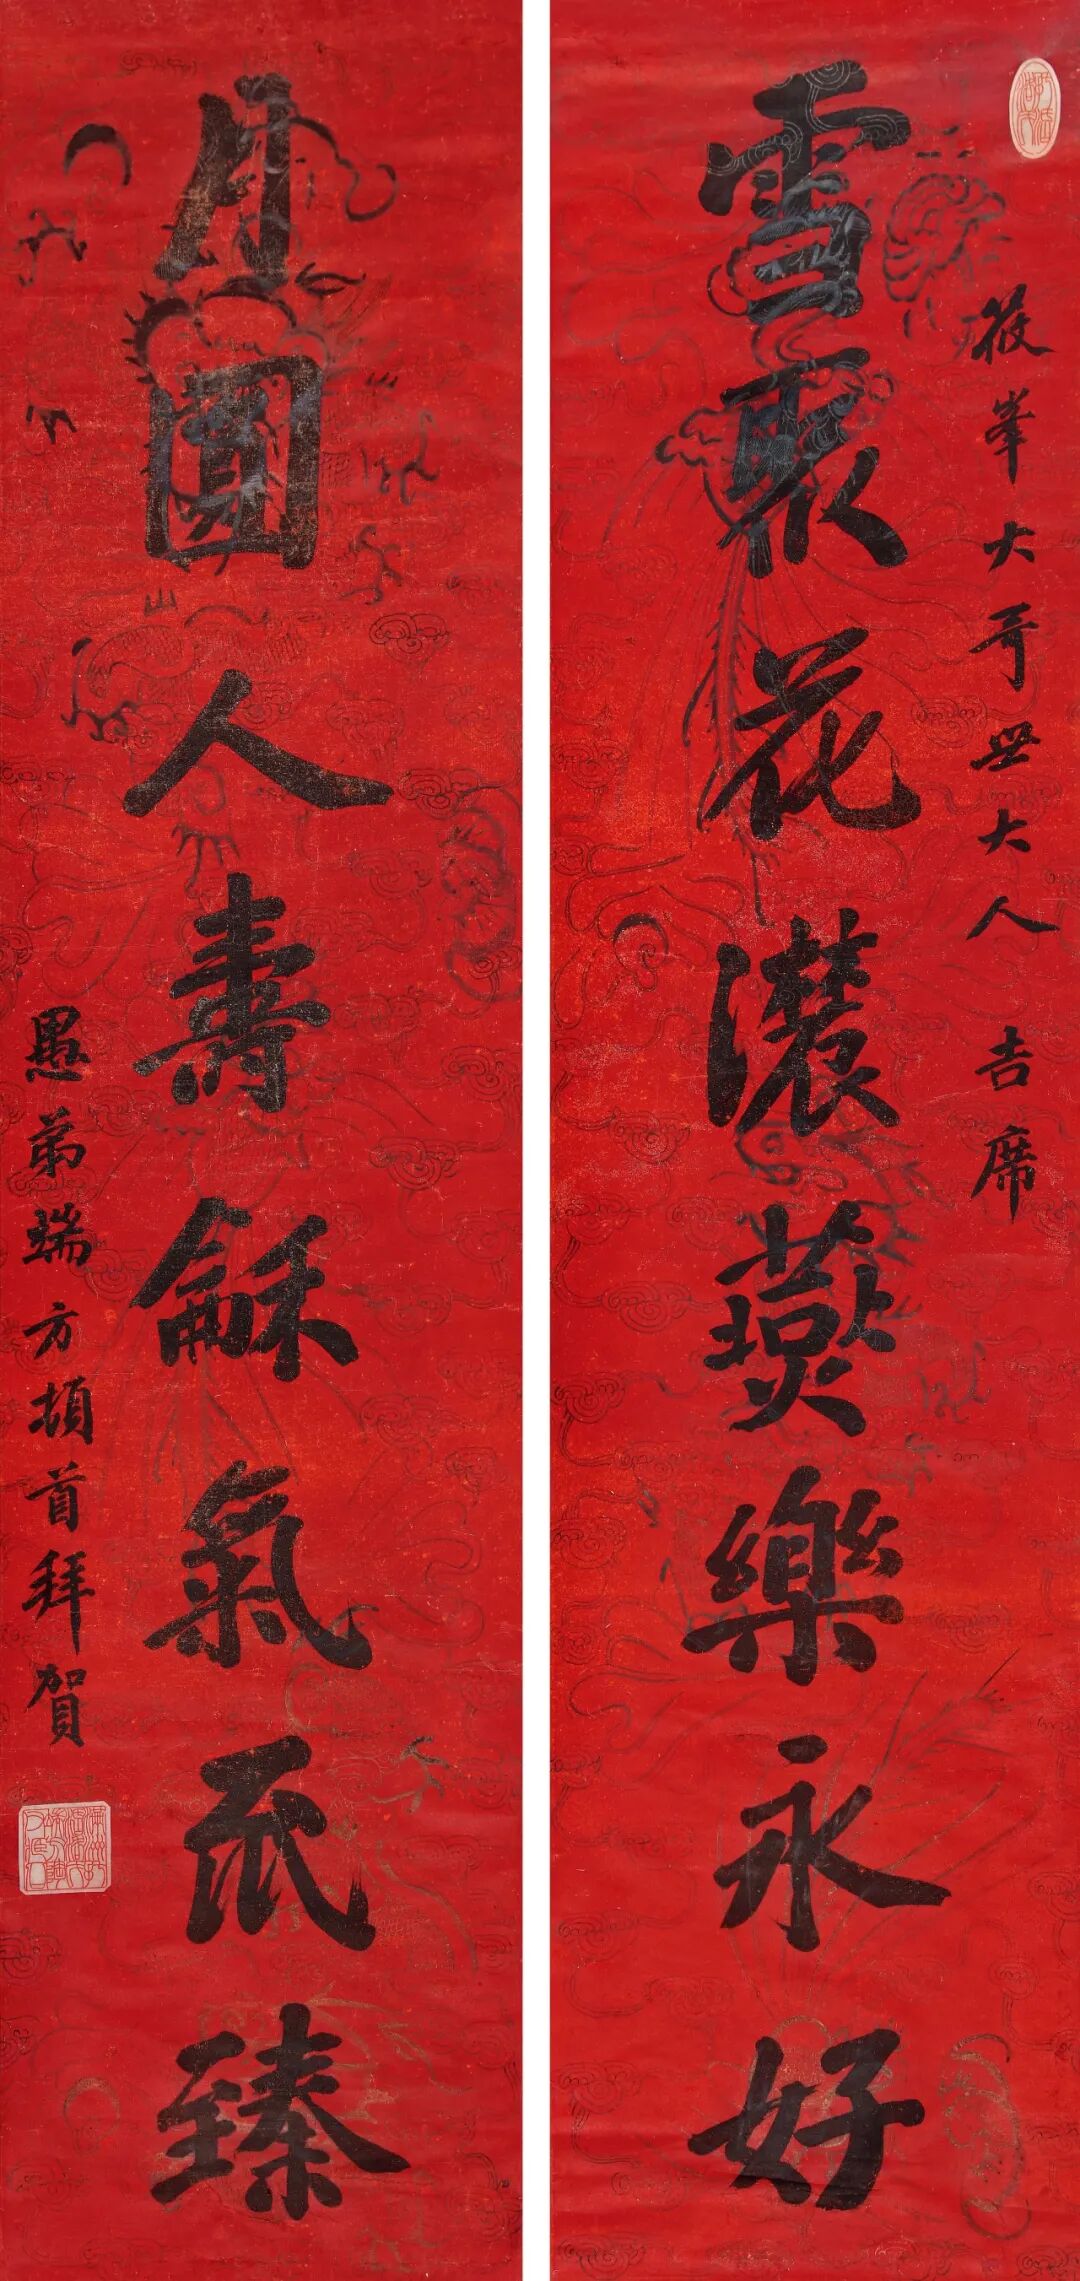 筱峯大哥世大人 吉席
雪聚花濃燕樂永好
月圓人壽龢氣乑臻
愚弟端方頓首拜賀